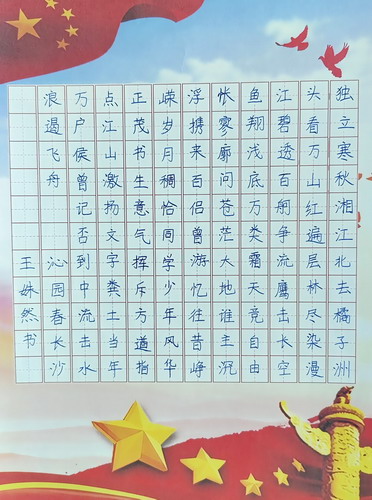 独立寒秋湘江北去橘子洲
头看万山红遍层林尽染漫
江碧透百舸争流鹰击长空
鱼翔浅底万类霜天竞自由
怅寥廓问苍茫大地谁主沉
浮携来百侣曾游忆往昔峥
嵘岁月稠恰同学少年风华
正茂书生意气挥斥方遒指
点江山激扬文字粪土当年
万户侯曾记否到中流击水
浪遏飞舟 沁园春长沙
王姝然书